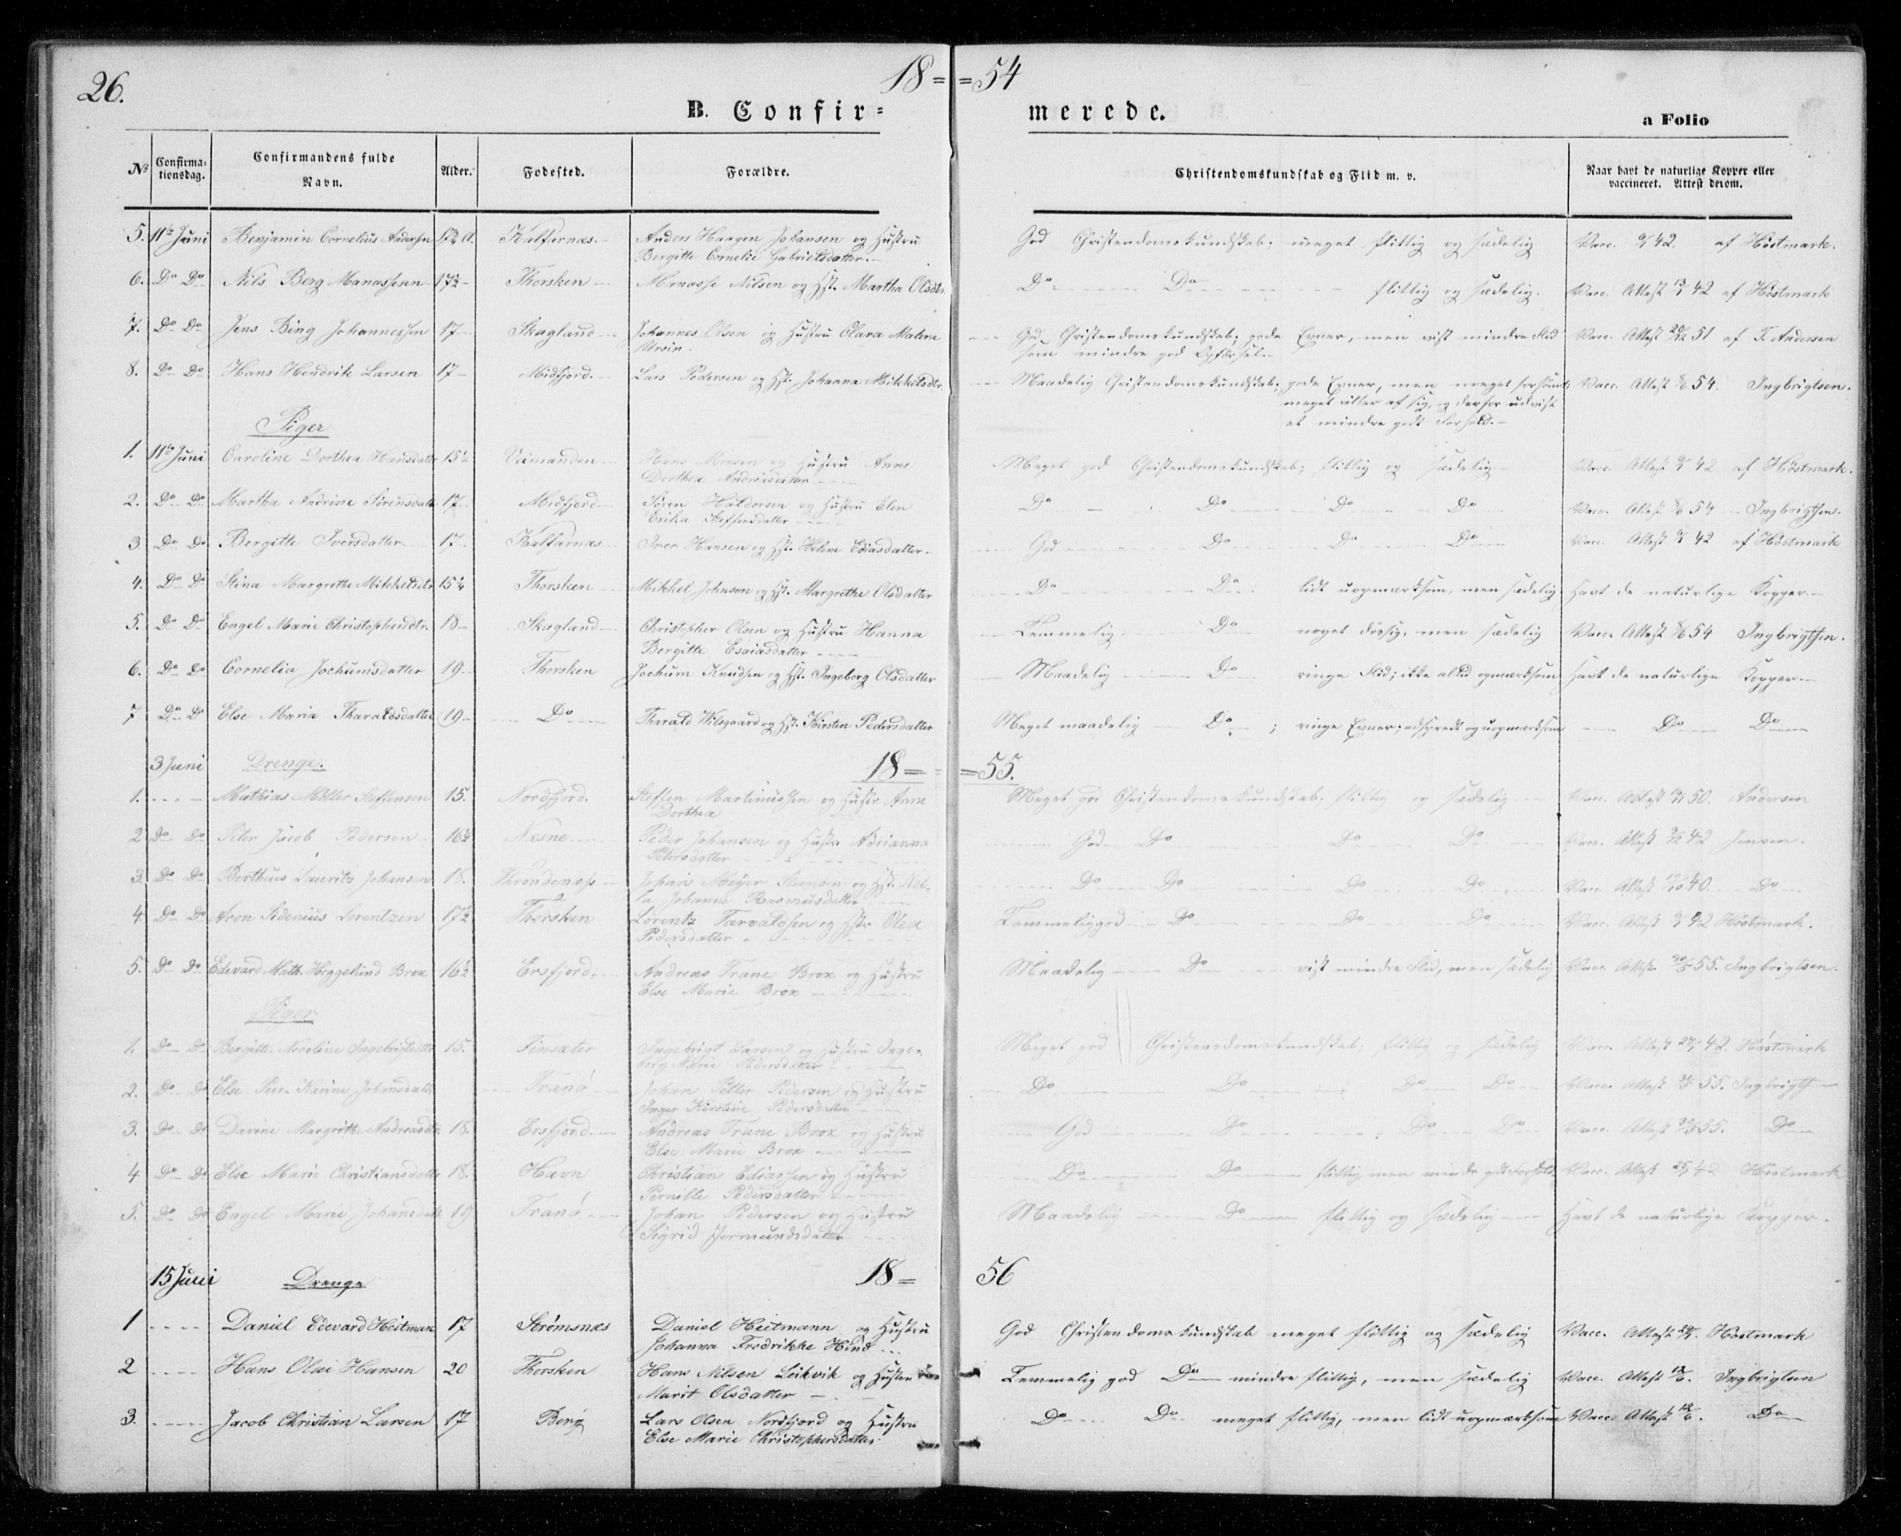 26.
18 = = 54
B. Confir= merede.
a Folio
No Confirmationsdag. Confirmandens fulde Navn. Alder. Fødested. Forældre. Christendomskundskab og Flid m. v. Naar havt de naturlige Kopper eller vaccineret. Attest derom.
5. 11te Juni Benjamin Cornelius Andersen Kalfarnæs. Anders Haagen Johansen og Hustru God Christendomskundskab; meget flittig og sædelig Vacc. 42. af Höstmark.
Bergitte Cornelie Gabrielsdatter.
6. Do Do Nils Berg Manassesen 17½ Thorsken Manasse Nilsen og Hst. Martha Olsdtr. Do Do flittig og sædelig. Vacc. Attest 42 af Höstmark
7. Do Do Jens Bing Johannessen 17 Skagland Johannes Olsen og Hustru Olava Malene God Christendomskundskab; gode Evner, men vist mindre Flid Vacc. Attest 51 af T. Andersen
Ursin. som mindre god Opførsel.
8. Do Do Hans Hendrik Larsen 17 Midfjord. Lars Pedersen og Hst. Johanna Mikkelsdtr. Maadelig Christendomskundskab; gode Evner, men meget forsømt; Vacc. Attest 54. Ingbrigtsen.
meget af sig, og derfor udvist
et mindre godt Forhold.
Piger
1. 11te Juni Caroline Dorthea Hansdatter 15½ Hans og Hustru Anne Meget god Christendomskundskab; flittig og sædelig Vacc. Attest 42 af Höstmark.
Dorthea Andreasdatter
2. Do Do Martha Andrine Sørensdatter 17 Midfjord Søren Haldorsen og Hustru Elen Do Do Do Do Vacc. Attest 54 Ingbrigtsen.
Erika Steffensdatter
3 Do Do Bergitte Iversdatter 17 Kalfarnæs Iver Hansen og Hst. Helene Esaiasdatter. God Do Do Do Vacc. Attest 42 af Höstmark
4. Do Do Stina Margrethe Mikkelsdtr. Thorsken Mikkel Johnsen og Hst. Margrethe Olsdatter Do Do lidt uopmærksom, men sædelig Havt de naturlige Kopper.
5. Do Do Engel Marie Christophersdtr. 18 Skagland Christopher Olsen og Hustru Hanna Temmelig Do noget døsig, men sædelig Vacc. Attest 54 Ingbrigtsen.
Bergitte Esaiasdatter
6. Do Do Cornelia Jochumsdatter 19 Thorsken Jochum Knudsen og Hst. Ingeborg Olsdatter Maadelig Do ringe Flid; ikke altid opmærksom Havt de naturlige Kopper
7 Do Do Else Maria Tharaldsdatter 19 Do Tharald Wilsgaard og Hst. Kirsten Pedersdatter Meget maadelig Do ; ringe Evner; adspredt og uopmærksom Do Do
3 Juni Drenge. 18 = = 55.
1. Mathias Möller Steffensen 15. Nordfjord. Steffen Martinussen og Hustr. Anne Meget god Christendomskundskab; flittig og sædelig Vacc. Attest 50. Andersen
Dorthea
2 Do Do Peter Jacob Pedersen 16½ Næsne Peder Johansen og Hustr. Adrianna God Do Do Do Vacc. Attest 42 Jensen.
Petersdatter
3. Do Do Berthus Laurits Johansen 18. Throndenæs Johan Meyer og Hst. Do Do Do Do Vacc. 40. Do
Johanne Rasmusdatter
4 Do Do Aron Sidenius Lorentzen 17½ Thorsken Lorentz Tarvaldsen og Hstr. Oline Temmelig god Do Do Do Vacc. Attest 42 Höstmark.
Pedersdatter
5. Do Do Edevard Math. Heggelund Brox 16½ Ersfjord. Andreas Trane Brox og Hustru Maadelig Do vist mindre Flid, men sædelig Vacc. Attest 55. Ingbrigtsen.
Else Marie Brox
Piger
1. Do Do Bergitte Nicoline Ingebrigtsdatter 15. Finsæter Ingebrigt Larsen og Hustru Inge- Meget god Christendomskundskab; flittig og sædelig Vacc. Attest 42. Höstmark
borg Marie Pedersdatter
2. Do Do Else Karine Johansdatter Tranö Johan Petter Pedersen og Hustru Do Do Do Do Vacc. Attest 55. Ingbrigtsen
Inger Kirstine Pedersdatter
3. Do Do Davine Margrethe Andreasdtr. 18. Ersfjord. Andreas Trane Brox og Hustru God Do Do Do Vacc. Attest 55. Do
Else Marie Brox
4 Do Do Else Marie Christiansdatter 18. Havn Christian Eliassen og Hustru Do Do flittig, men mindre godt Forhold Vacc. Attest 42 Höstmark
Pernille Pedersdatter
5. Do Do Engel Marie Johansdatter 19 Tranö Johan Pedersen og Hustru Maadelig Do flittig og sædelig Havt de naturlige Kopper.
Sigrid Jermundsdatter
15 Juni Drenge 18 = 56
1 Daniel Edevard Heitman 17 Strømsnæs Daniel Heitmann og Hustru God Christendomskundskab meget flittig og sædelig Vacc. Attest Höstmark
Johanna Fredrikke Hind
2 Hans Olai Hansen 20 Thorsken Hans Nilsen Leikvik og Hustru Temmelig god Do mindre flittig, men sædelig Vacc. Attest Ingbrigtsen
Marit Olsdatter
3. Jacob Christian Larsen 17 Berg Lars Olsen Nordfjord og Hustru Do Do meget flittig, men lidt uopmærksom Vacc. Attest Do
Else Marie Christophersdatter